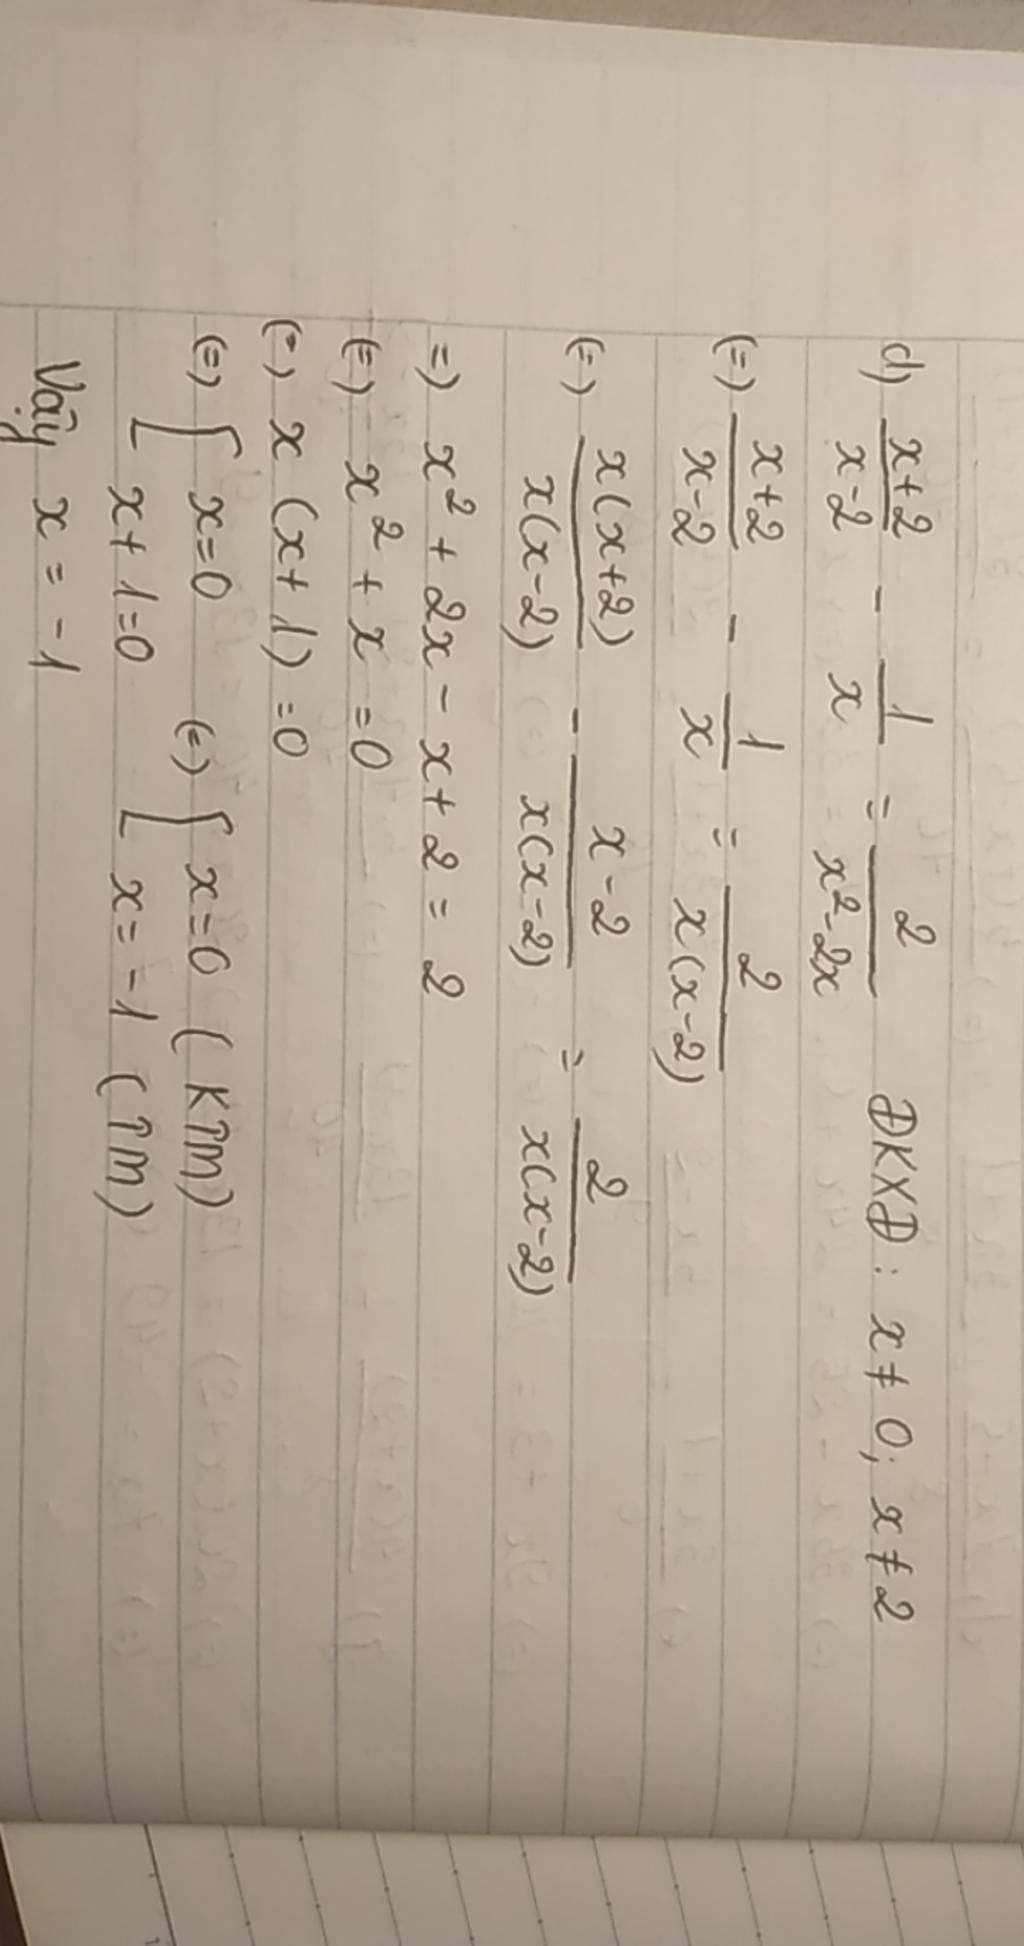 d) x+2/x-2 - 1/x = 2/x²-2x ĐKXĐ: x ≠ 0; x ≠ 2
(=) x+2/x-2 - 1/x = 2/x(x-2)
(=) x(x+2)/x(x-2) - x-2/x(x-2) = 2/x(x-2)
=) x² + 2x - x + 2 = 2
(=) x² + x = 0
(=) x (x+1) = 0
(=) [ x=0 (=) [ x=0 (KTM)
x+1=0 x=-1 (TM)
Vậy x = -1